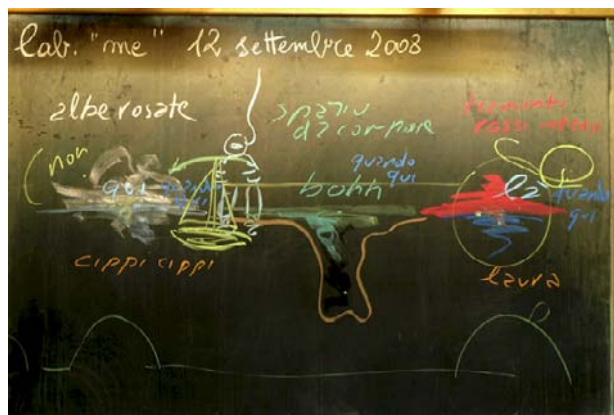 lab. "me" 12 settembre 2003
albe rosate
spazio
da compiere
tramonti
rossi
(non
qui
quando
qui
quando
qui
bohh
là
quando
qui
cippi cippi
laura